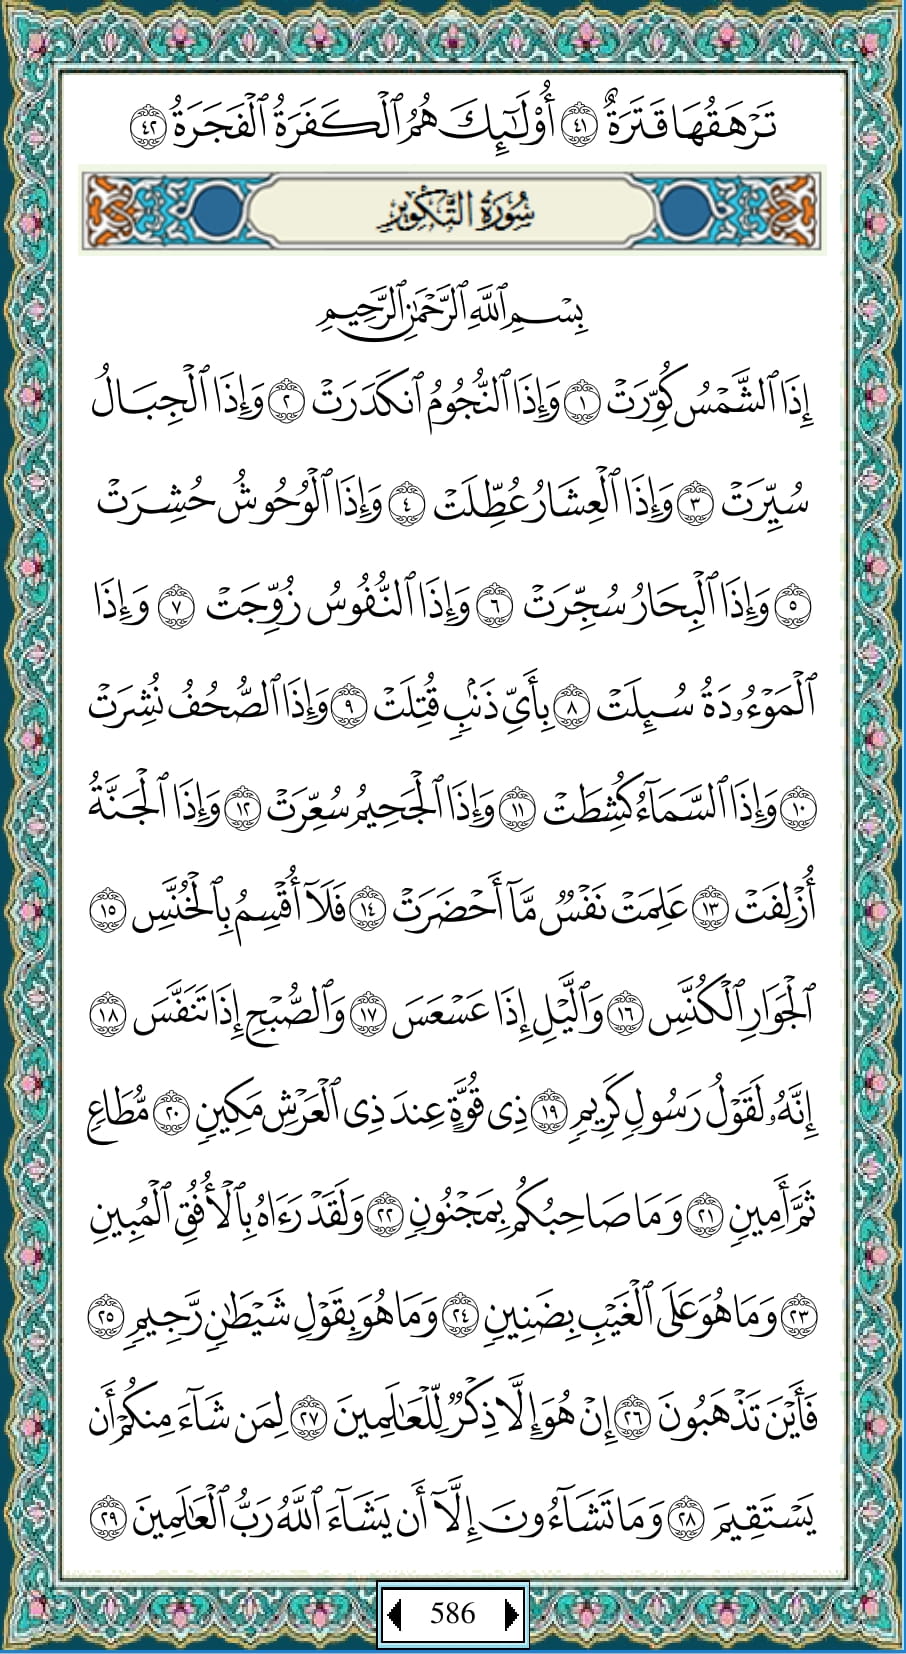 تَرْهَقُهَا قَتَرَةٌ ٤١ أُو۟لَٰٓئِكَ هُمُ ٱلْكَفَرَةُ ٱلْفَجَرَةُ ٤٢
سُورَةُ التَّكْوِيرِ
بِسْمِ ٱللَّهِ ٱلرَّحْمَٰنِ ٱلرَّحِيمِ
إِذَا ٱلشَّمْسُ كُوِّرَتْ ١ وَإِذَا ٱلنُّجُومُ ٱنكَدَرَتْ ٢ وَإِذَا ٱلْجِبَالُ
سُيِّرَتْ ٣ وَإِذَا ٱلْعِشَارُ عُطِّلَتْ ٤ وَإِذَا ٱلْوُحُوشُ حُشِرَتْ
٥ وَإِذَا ٱلْبِحَارُ سُجِّرَتْ ٦ وَإِذَا ٱلنُّفُوسُ زُوِّجَتْ ٧ وَإِذَا
ٱلْمَوْءُۥدَةُ سُئِلَتْ ٨ بِأَىِّ ذَنۢبٍ قُتِلَتْ ٩ وَإِذَا ٱلصُّحُفُ نُشِرَتْ
١٠ وَإِذَا ٱلسَّمَآءُ كُشِطَتْ ١١ وَإِذَا ٱلْجَحِيمُ سُعِّرَتْ ١٢ وَإِذَا ٱلْجَنَّةُ
أُزْلِفَتْ ١٣ عَلِمَتْ نَفْسٌ مَّآ أَحْضَرَتْ ١٤ فَلَآ أُقْسِمُ بِٱلْخُنَّسِ ١٥
ٱلْجَوَارِ ٱلْكُنَّسِ ١٦ وَٱلَّيْلِ إِذَا عَسْعَسَ ١٧ وَٱلصُّبْحِ إِذَا تَنَفَّسَ ١٨
إِنَّهُۥ لَقَوْلُ رَسُولٍ كَرِيمٍ ١٩ ذِى قُوَّةٍ عِندَ ذِى ٱلْعَرْشِ مَكِينٍ ٢٠ مُّطَاعٍ
ثَمَّ أَمِينٍ ٢١ وَمَا صَاحِبُكُم بِمَجْنُونٍ ٢٢ وَلَقَدْ رَءَاهُ بِٱلْأُفُقِ ٱلْمُبِينِ
٢٣ وَمَا هُوَ عَلَى ٱلْغَيْبِ بِضَنِينٍ ٢٤ وَمَا هُوَ بِقَوْلِ شَيْطَٰنٍ رَّجِيمٍ ٢٥
فَأَيْنَ تَذْهَبُونَ ٢٦ إِنْ هُوَ إِلَّا ذِكْرٌ لِّلْعَٰلَمِينَ ٢٧ لِمَن شَآءَ مِنكُمْ أَن
يَسْتَقِيمَ ٢٨ وَمَا تَشَآءُونَ إِلَّآ أَن يَشَآءَ ٱللَّهُ رَبُّ ٱلْعَٰلَمِينَ ٢٩
586